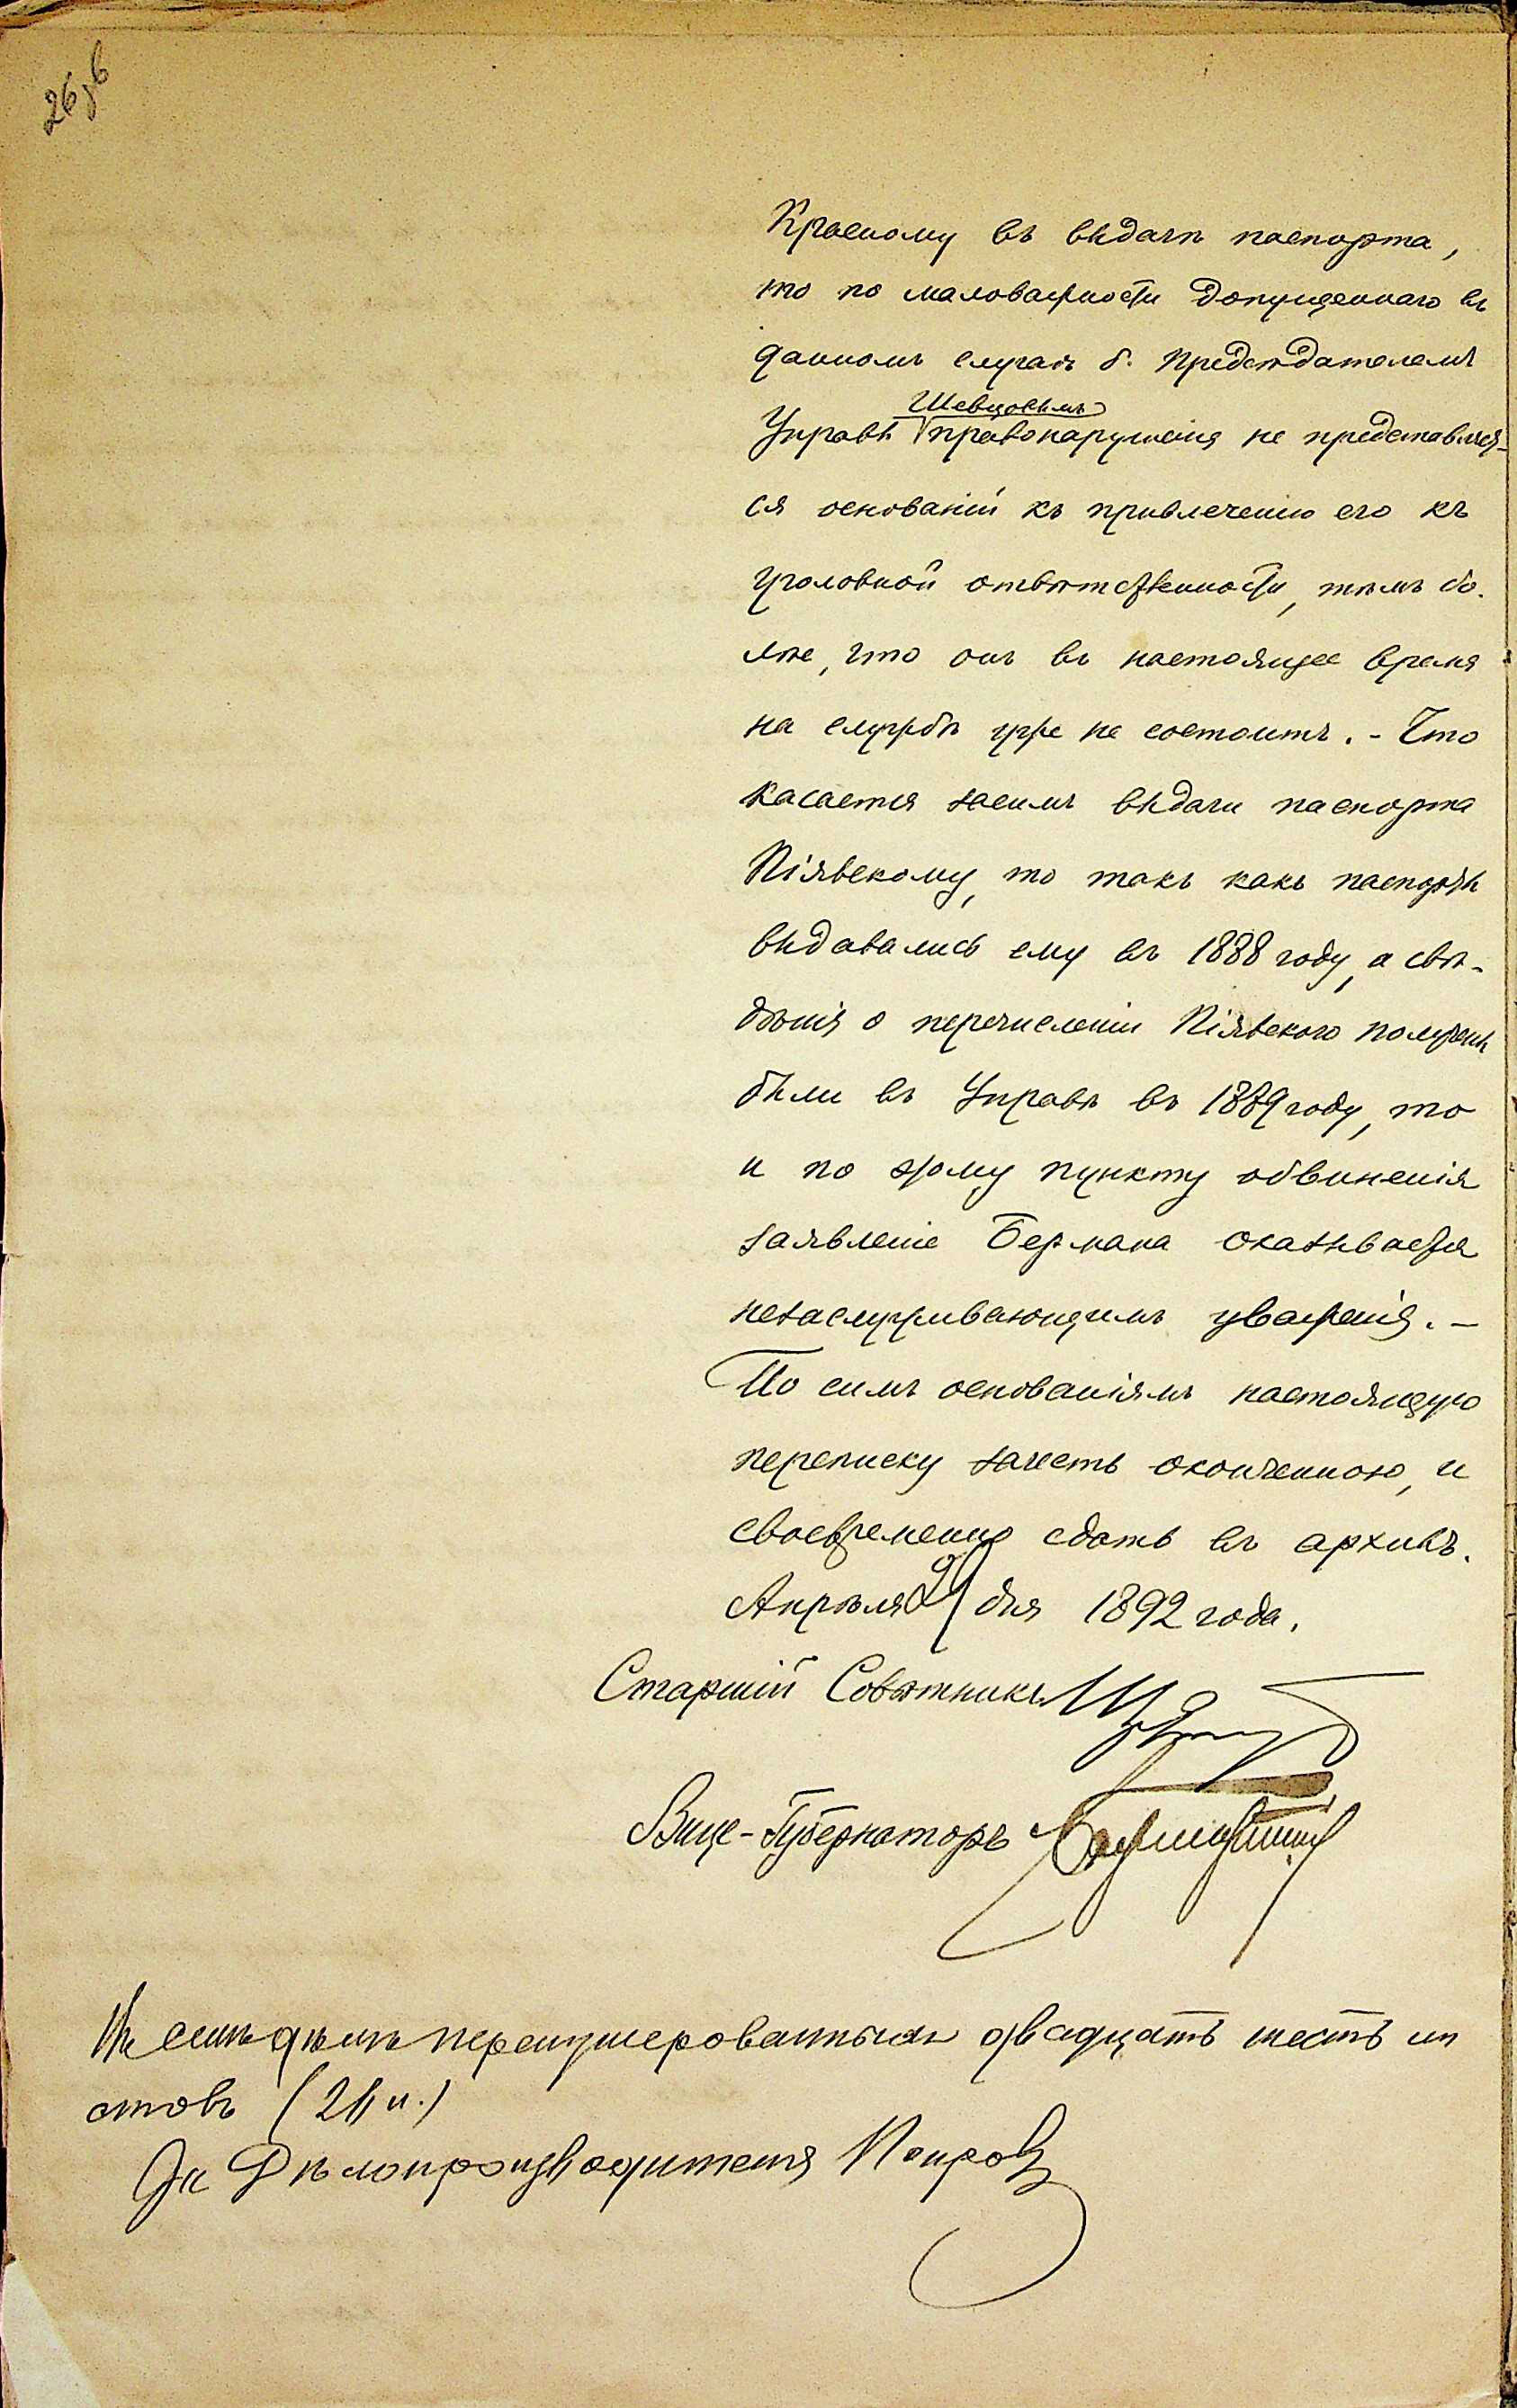 26об
Красному въ выдачѣ паспорта,
то по маловажности допущеннаго въ
данномъ случаѣ б. Предсѣдателемъ
Шевцовымъ
Управы правонарушенія не представляет-
ся основаній къ привлеченію его къ
уголовной отвѣтственности, тѣмъ бо-
лѣе, что онъ въ настоящее время
на службѣ уже не состоитъ. - Что
касается засимъ выдачи паспорта
Піявскому, то такъ какъ паспорты
выдавались ему въ 1888 году, а свѣ-
дѣнія о перечисленіи Піявскаго получены
были въ Управѣ въ 1889 году, то
и по этому пункту обвиненія
заявленіе Бермана оказывается
незаслуживающимъ уваженія. -
По симъ основаніямъ настоящую
переписку зачесть оконченною, и
своевременно сдать въ архивъ.
Апрѣля дня 1892 года.
Старшій Совѣтникъ
Вице-Губернаторъ
Въ семъ дѣлѣ перенумерованныхъ двадцать шесть ли
стовъ (26 л.)
За Дѣлопроизводителя